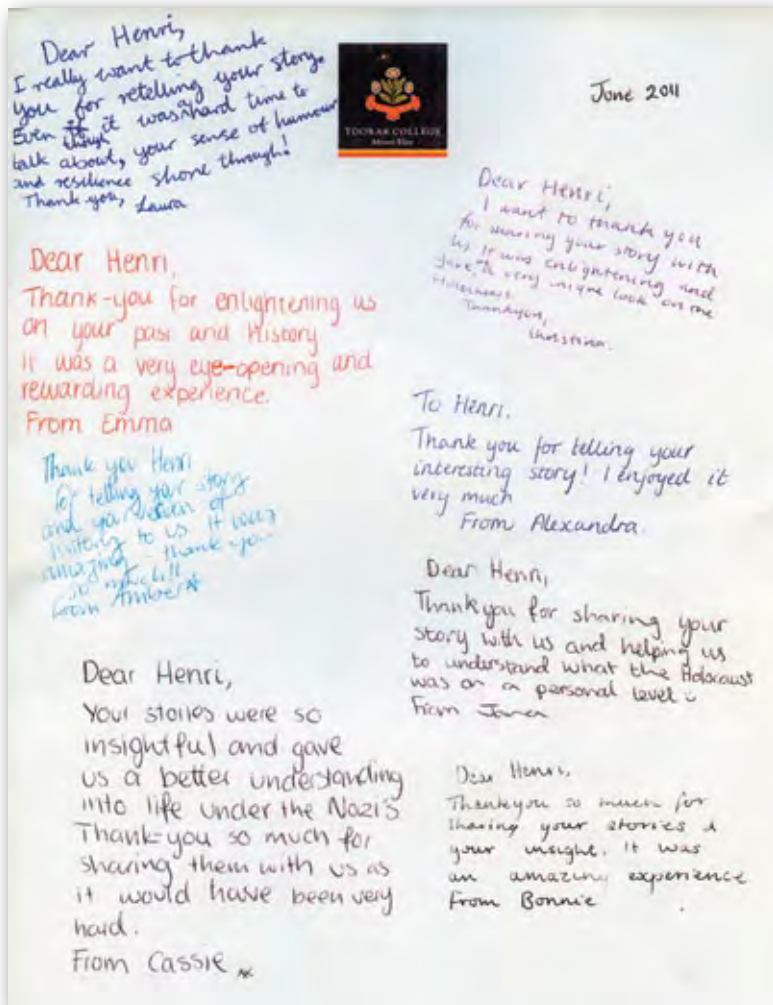 Dear Henri,
I really want to thank
you for retelling your story.
Even if though it was a hard time to
talk about, your sense of humour
and resilience shone through!
Thank you, Laura
TOORAK COLLEGE
Mount Eliza
June 2011
Dear Henri,
I want to thank you
for sharing your story with
us. It was enlightening and
gave a very unique look on the
Holocaust.
Thankyou,
Christina.
Dear Henri,
Thank-you for enlightening us
on your past and History
It was a very eye-opening and
rewarding experience.
From Emma
To Henri.
Thank you for telling your
interesting story! I enjoyed it
very much
From Alexandra.
Thank you Henri
for telling your story
and your version of
history to us it was
amazing - thank you
so much!!!
From Amber*
Dear Henri,
Thankyou for sharing your
story with us and helping us
to understand what the Holocaust
was on a personal level
From
Dear Henri,
Your stories were so
insightful and gave
us a better understanding
into life under the Nazi's
Thank-you so much for
sharing them with us as
it would have been very
hard.
From Cassie
Dear Henri,
Thankyou so much for
sharing your stories &
your insight. It was
an amazing experience
From Bonnie